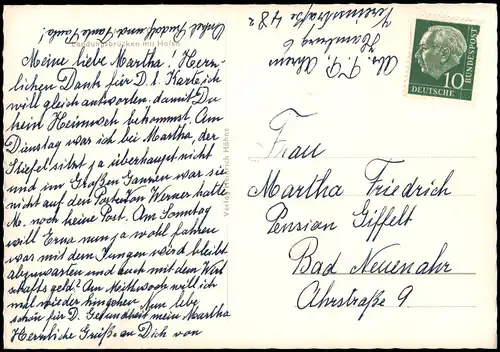 Onkel Rudolf und Tante Paula!
Landungsbrücken mit Hafen
Meine liebe Martha! Herz-
lichen Dank für D. l. Karte, ich
will gleich antworten, damit Du
kein Heimweh bekommst. Am
Dienstag war ich bei Martha, der
Stiefel sitzt ja überhaupt nicht
und im Großen Ganzen war sie
nicht auf den Von Werner hatte
M. noch keine Post. Am Sonntag
will Erna nun ja wohl fahren
was mit dem Jungen wird bleibt
abzuwarten und auch mit dem Wirt
schaftsgeld? Am Mittwoch will ich
mal wieder hingehen. Nun lebe
schön für D. Gesundheit mein Martha
Herzliche Grüße an Dich von
Verlag Heinrich Hähne
Abs.
Hamburg 6
Vereinsstraße 48
10
DEUTSCHE
BUNDESPOST
Frau
Martha Friedrich
Pension Giffelt
Bad Neuenahr
Ahrstraße 9